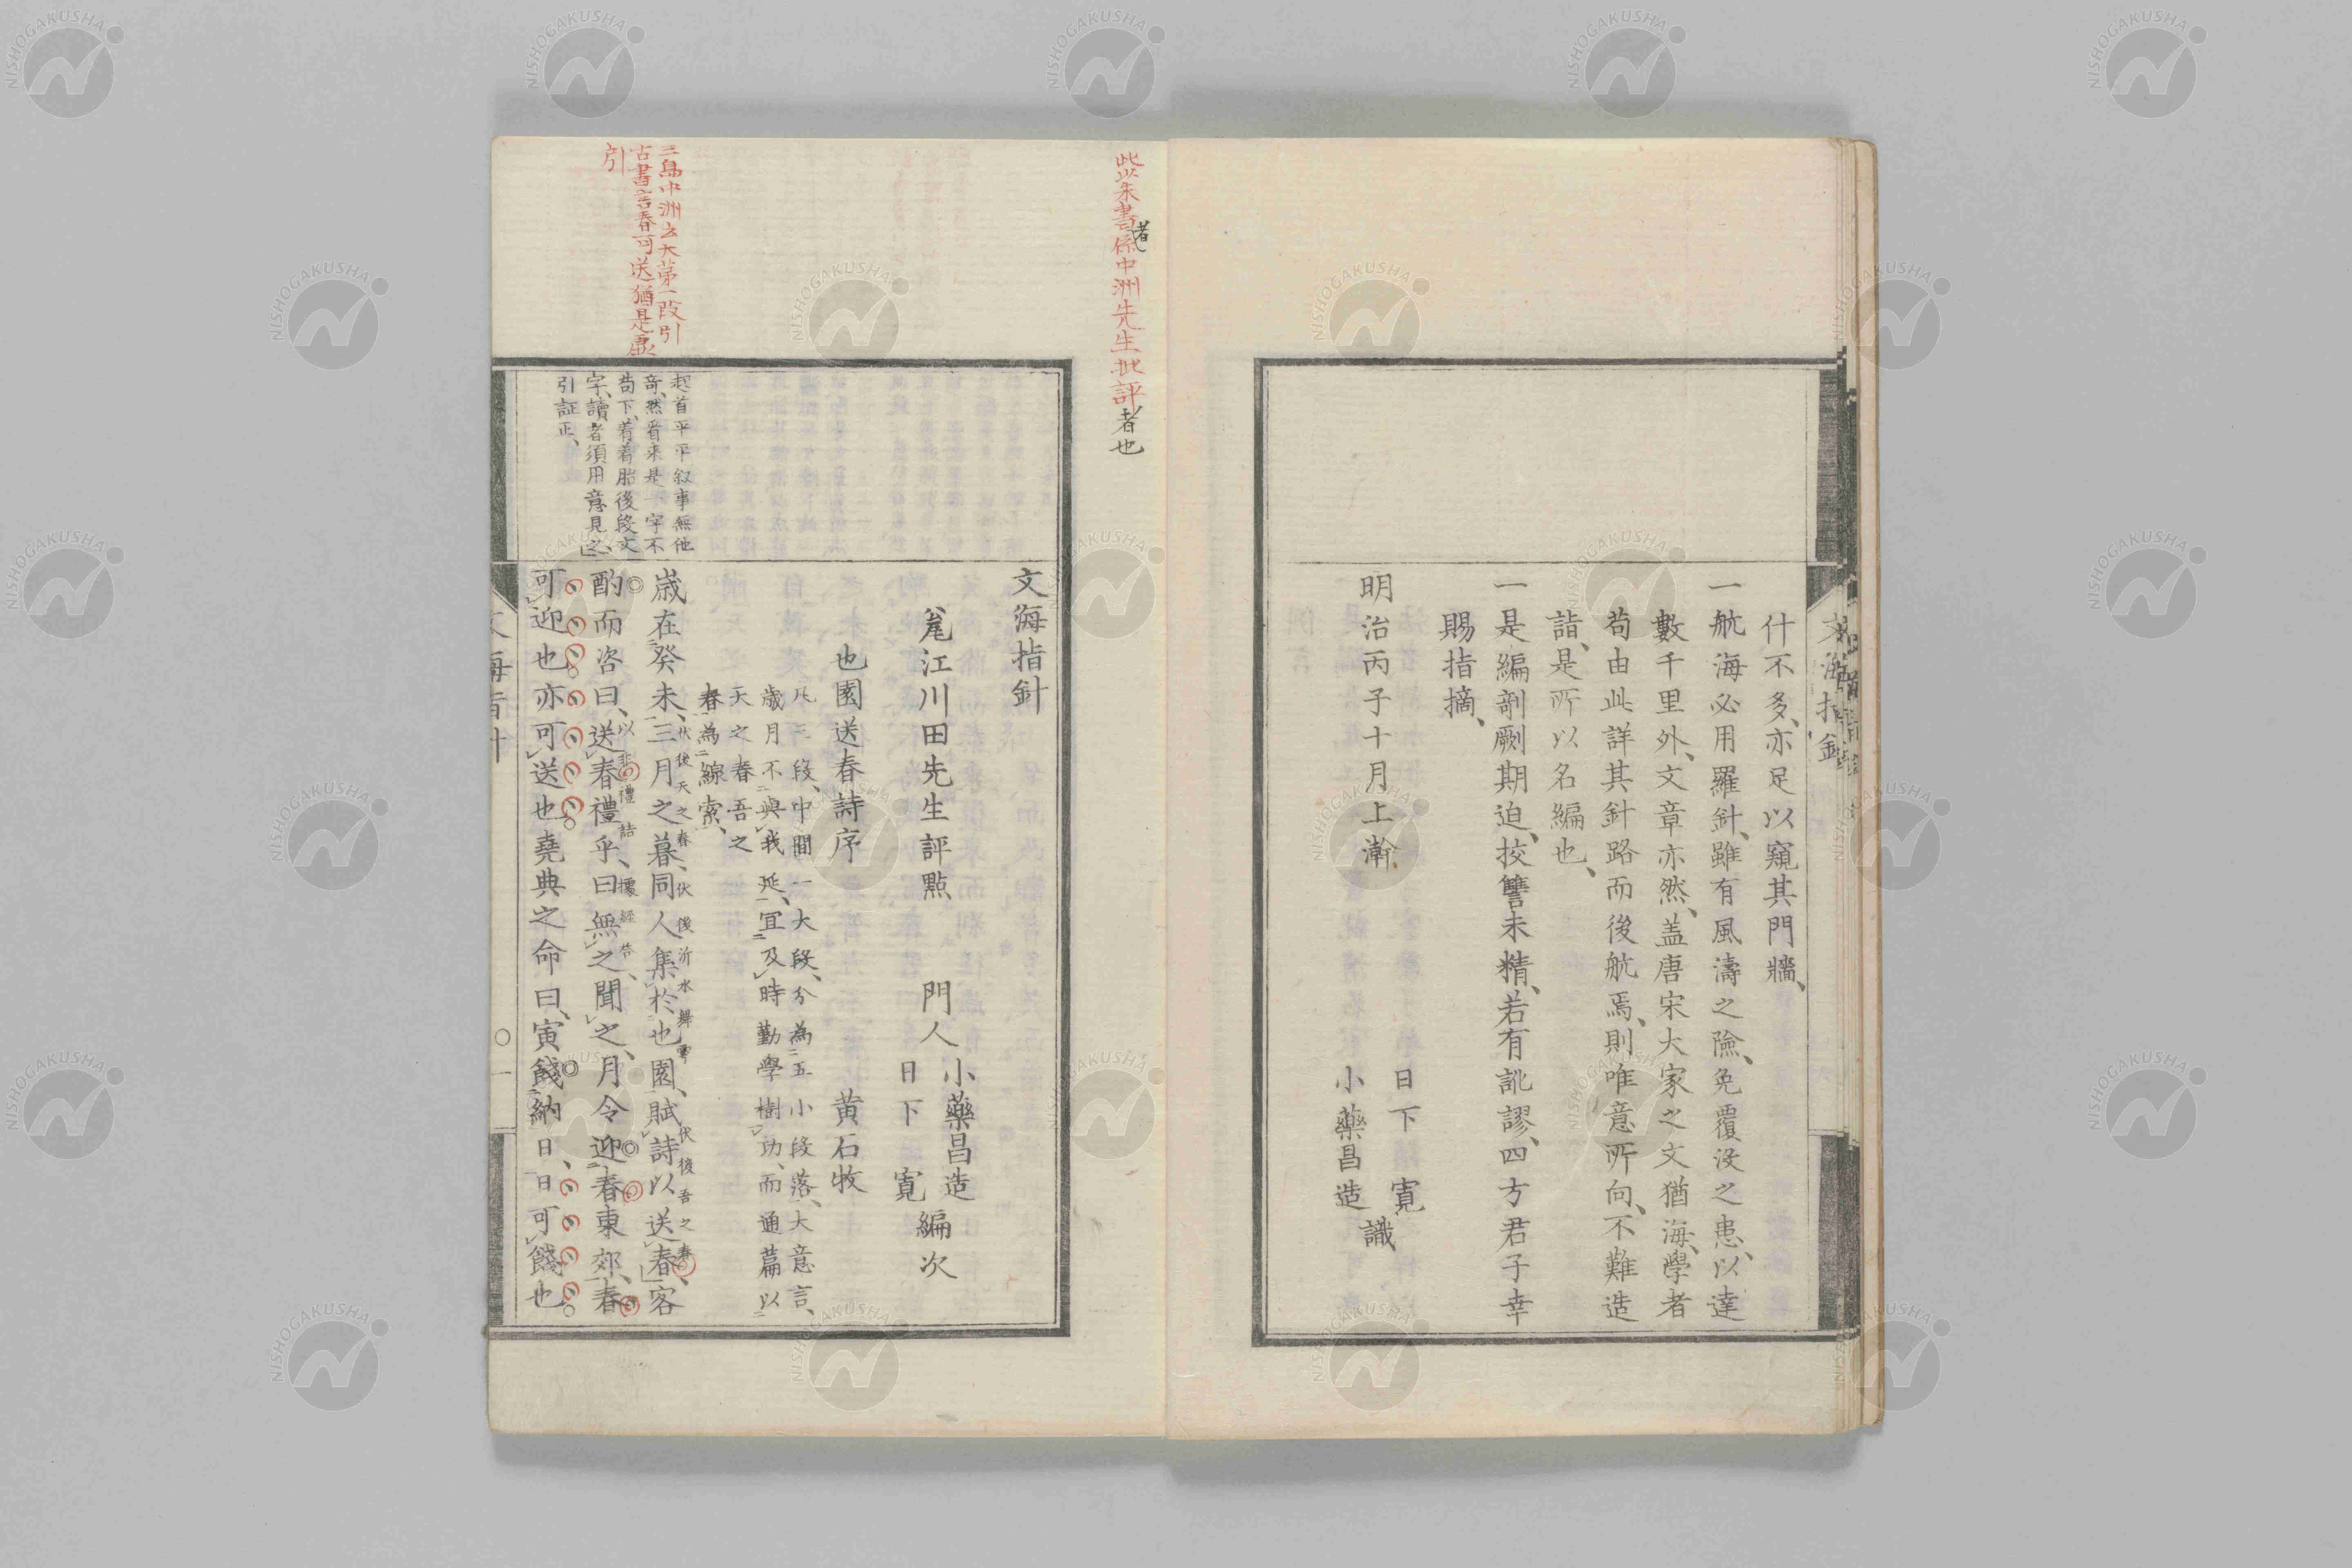 什不多、亦足以窺其門牆、
一航海必用羅針、雖有風濤之險、免覆没之患、以達
數千里外、文章亦然、盖唐宋大家之文猶海、學者
苟由此詳其針路而後航焉、則唯意所向、不難造
詣、是所以名編也、
一是編剞劂期迫、挍讐未精、若有訛謬、四方君子幸
賜指摘、
明治丙子十月上澣
日下寛
小藥昌造
識
此朱書係中洲先生批評者也
者
文海指針
甕江川田先生評點
門人
小藥昌造
日下寛
編次
也園送春詩序
黄石牧
凡三段、中間一大段、分為五小段落、大意言、
歳月不與我延、宜及時勤學樹功、而通篇以
天之春吾之
春為線索、
歳在癸未、三月之暮、同人集於也園、賦詩以送春、客
伏後天之春、伏後沂水舞雩
伏後吾之春、
酌而咨曰、送春禮乎、曰無之聞之、月令迎春東郊、春
以非禮詰、
據經答、
可迎也亦可送也堯典之命曰、寅餞納日、日可餞也
三島中洲云大第一段引
古書言春可送猶是虚
引
起首平平叙事無他
奇、然看來是一字不
苟下、着着胎後段文
字、讀者須用意見之、
引証正、
一
NISHOGAKUSHA